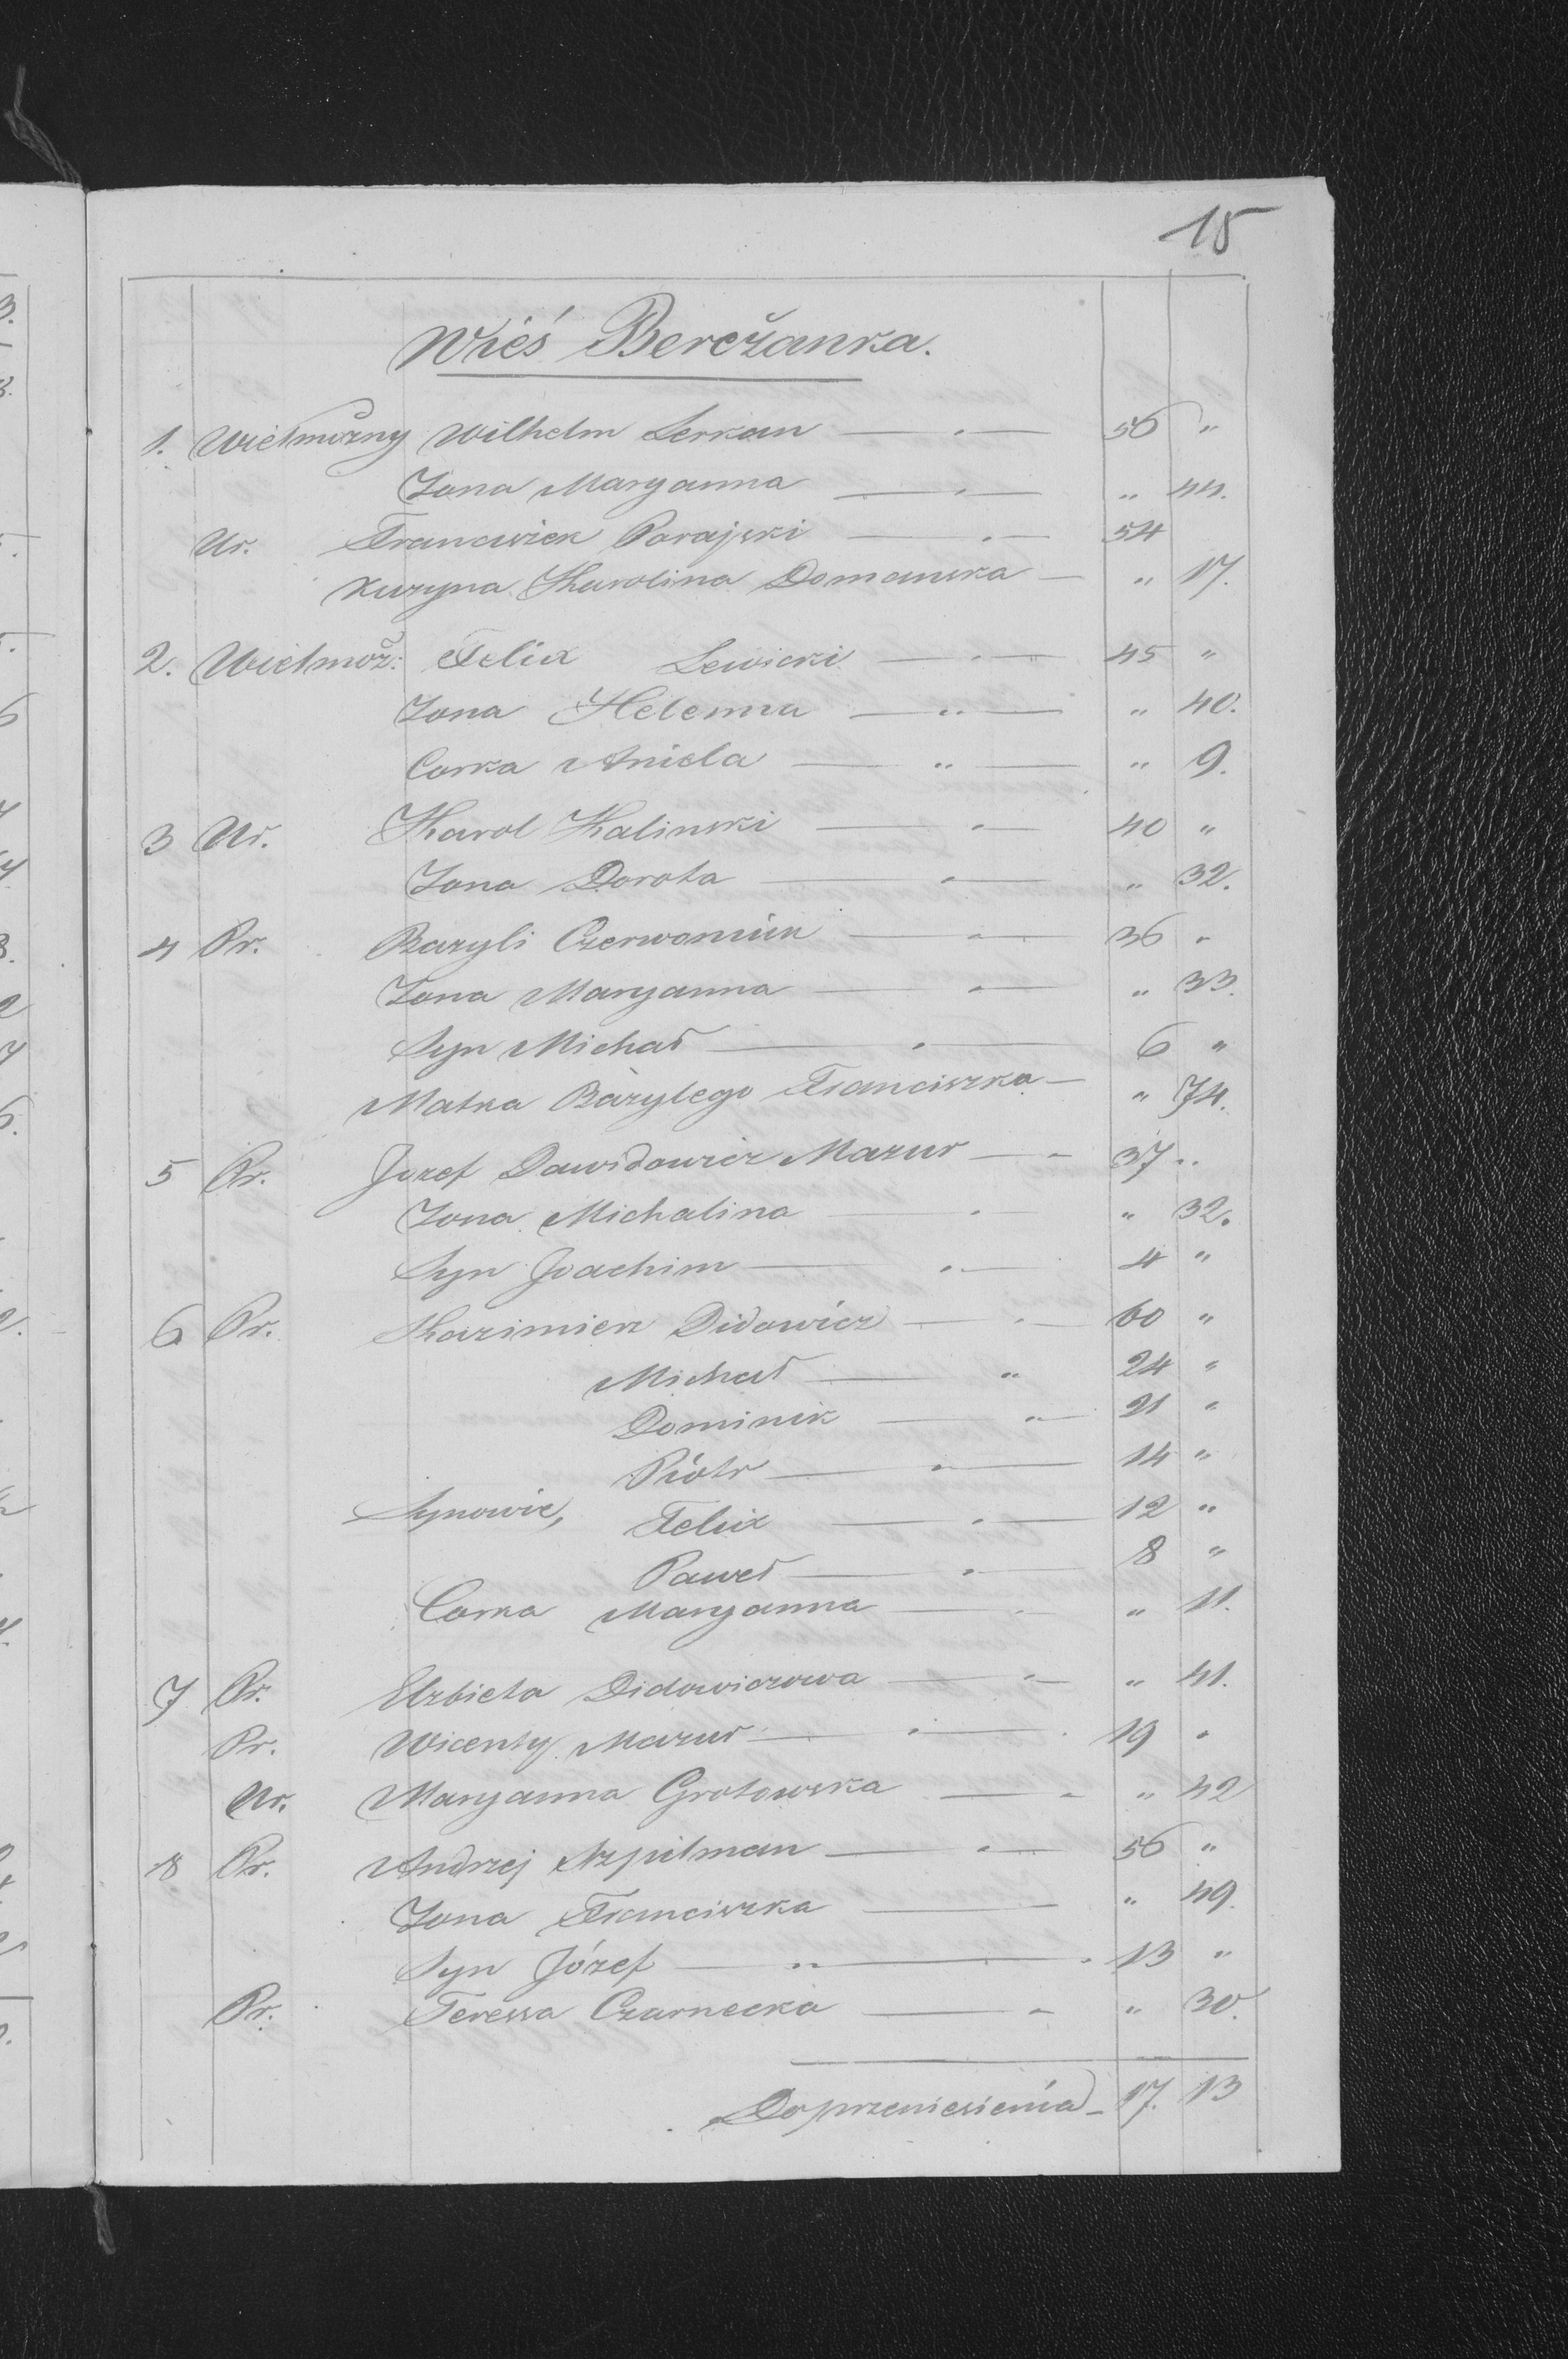 15
Wieś Berežanka.
1. Wielmożny Wilhelm Lerkan — „ — 56 „
Żona Maryanna — „ — „ 44.
Ur. Franciszek Parajski — „ — 54
Kuzyna Karolina Domanska — „ 17.
2. Wielmoż: Felix Lewicki — „ — 45 „
Żona Helenna — „ — „ 40.
Corka Aniela — „ — „ 9.
3 Ur. Karol Kalinski — „ — 40 „
Żona Dorota — „ — „ 32.
4 Pr. Bazyli Czerwoniuk — „ — 36 „
Żona Maryanna — „ — „ 33.
Syn Michał — „ — 6 „
Matka Bazylego Franciszka — „ 74.
5 Pr. Jozef Dawidowicz Mazur — „ 37 „
Żona Michalina — „ — „ 32.
Syn Joachim — „ — 4 „
6 Pr. Kazimierz Didowicz — „ — 60 „
Michał — „ 24 „
Dominik — „ — 21 „
Piotr — „ — 14 „
Synowie, Felix — „ — 12 „
Paweł — „ — 8 „
Corka Maryanna — „ — „ 11.
7 Pr. Elzbieta Didowiczowa — „ — „ 41.
Pr. Wicenty Mazur — „ — 19 „
Ur. Maryanna Grotowska — „ „ 42
8 Pr. Andrzej Szpilman — „ — 56 „
Żona Franciszka — „ 49.
Syn Józef — „ — 13 „
Pr. Teressa Czarnecka — „ „ 30.
Do przeniesienia — 17. 13